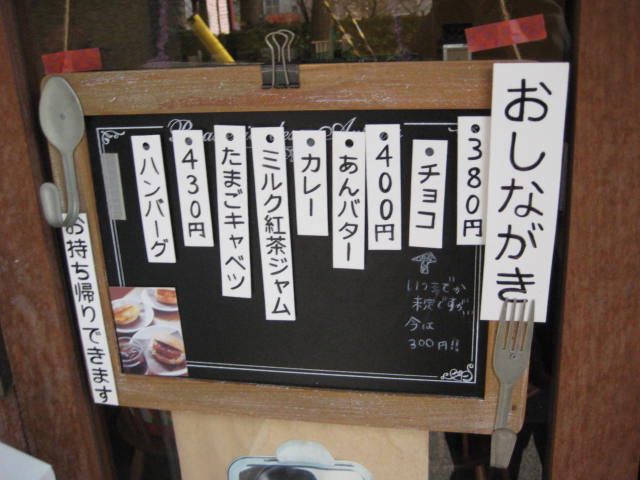 おしながき
380円
チョコ
400円
あんバター
カレー
ミルク紅茶ジャム
たまごキャベツ
430円
ハンバーグ
いつまでか
未定ですが、
今は
300円!!
お持ち帰りできます